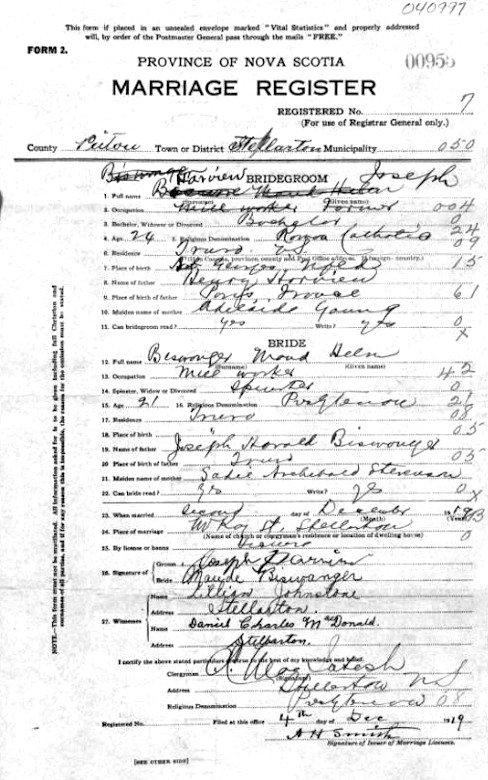 040997
This form if placed in an unsealed envelope marked "Vital Statistics" and properly addressed
will, by order of the Postmaster General pass through the mails "FREE."
FORM 2.
PROVINCE OF NOVA SCOTIA
MARRIAGE REGISTER
REGISTERED No. 7
(For use of Registrar General only.)
County Pictou Town or District Stellarton Municipality 050
BRIDEGROOM
Joseph
1. Full name
(Surname) (Given name)
2. Occupation 004
3. Bachelor, Widower or Divorced Bachelor 0
4. Age 24 5. Religious Denomination Roman Catholic 24
6. Residence Truro N.S. 09
7. Place of birth St Georges Nfld 15
8. Name of father Henry
9. Place of birth of father 61
10. Maiden name of mother Adelaide Young
11. Can bridegroom read? Yes Write? Yes 0
x
BRIDE
12. Full name Biswanger Maud Helen
(Surname) (Given name)
13. Occupation Mill worker 42
14. Spinster, Widow or Divorced Spinster 0
15. Age 21 16. Religious Denomination Presbyterian 21
17. Residence Truro 08
18. Place of birth 05
19. Name of father Joseph Harald Biswanger
20. Place of birth of father Truro 05
21. Maiden name of mother Sadie Archebald Stevenson
22. Can bride read? Yes Write? Yes 0
x
23. When married second day of December 1919
(Month) (Year)
24. Place of marriage McKay St. Stellarton 0
(Name of church or clergyman's residence or location of dwelling house)
25. By license or banns
26. Signature of
Groom Joseph
Bride Maude Biswanger
27. Witnesses
Name Lillian Johnstone
Address Stellarton.
Name Daniel Charles McDonald.
Address Stellarton.
I certify the above stated particulars are true to the best of my knowledge and belief.
Clergyman
(Signature)
Address Stellarton N S
Religious Denomination Presbyterian 08
Registered No. Filed at this office 4th day of Dec 1919
A H Smith
Signature of Issuer of Marriage Licenses.
[SEE OTHER SIDE]
NOTE.—This form must not be mutilated. All information asked for is to be given including full Christian and
surnames of all parties, and if for any reason this is impossible, the reason for the omission must be stated.